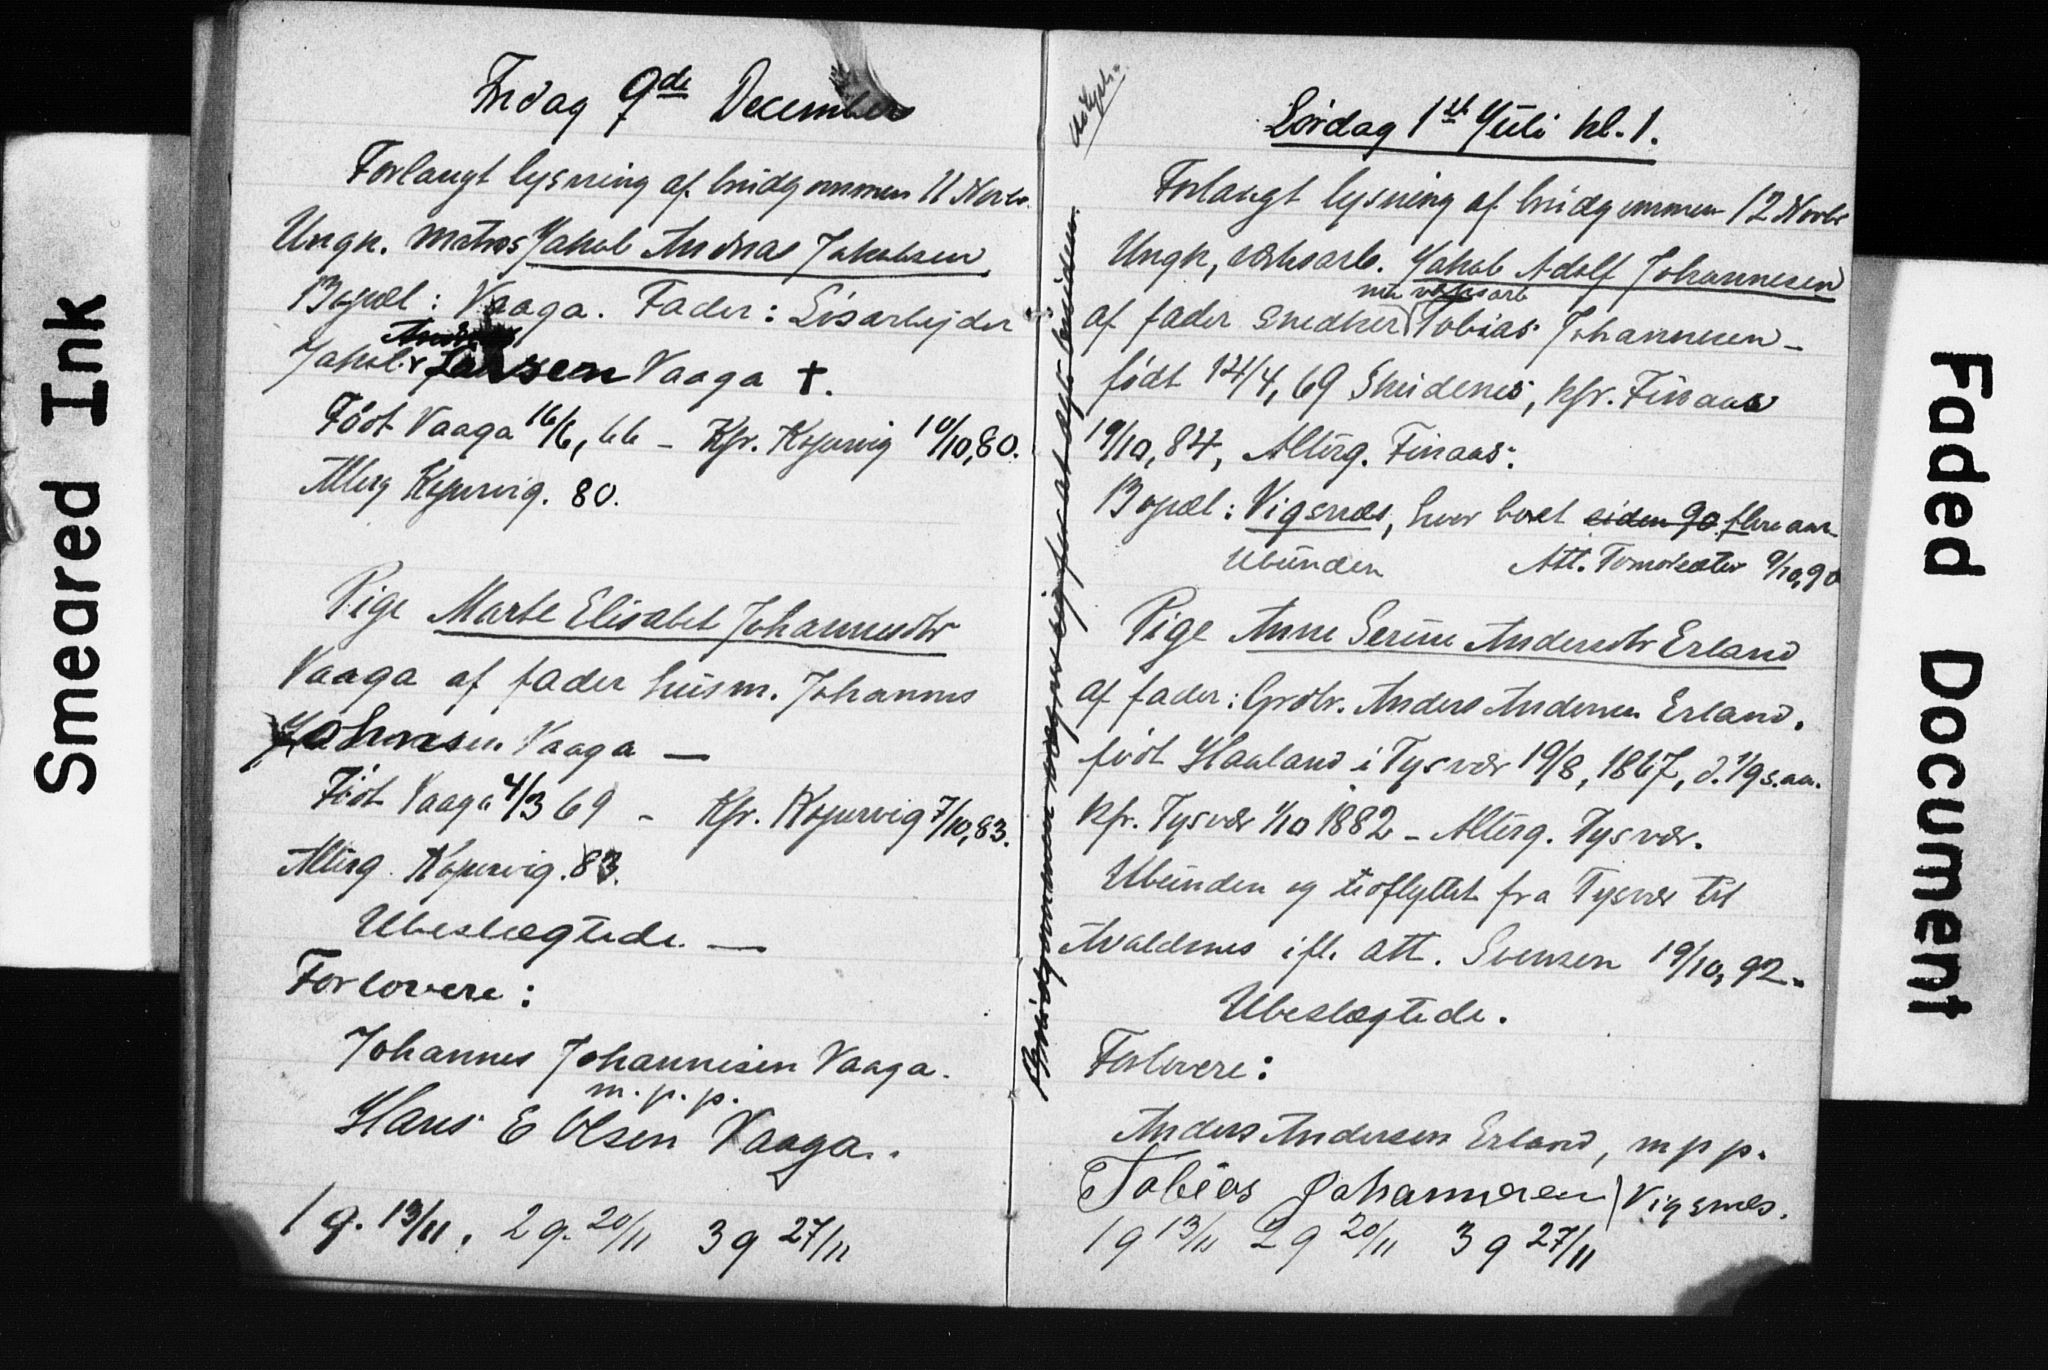 Smeared Ink
Fredag 9de December
Forlangt lysning af brudgommen 11 Novbr.
Ungk. matros Jakob Andreas Jakobsen
Bopæl: Vaaga. Fader: Løsarbejder
Andreas
Jakob Larsen Vaaga †.
Født Vaaga 16/6, 66 – Kfr. Kopervig 10/10, 80.
Alterg Kopervig. 80.
Pige Marte Elisabet Johannesdtr
Vaaga af fader husm. Johannes
Johnsen Vaaga —
Født Vaaga 4/3 69 – Kfr. Kopervig 7/10, 83.
Alterg. Kopervig. 83.
Ubeslægtede. —
Forlovere:
Johannes Johannesen Vaaga.
m. p. p.
Hans E Olsen Vaaga.
1 g. 13/11. 2 g. 20/11 3 g 27/11
Lørdag 1st Juli kl. 1.
Forlangt lysning af brudgommen 12 Novbr
Ungk, verksarb. Jakob Adolf Johannesen
nu verksarb
af fader Snedker Tobias Johannesen –
født 14/4, 69 Skudenes, kfr. Finaas
19/10, 84, Alterg. Finaas.
Bopæl: Vigsnæs, hvor boet siden 90 flere aar
Ubunden Att. 9/10, 90
Pige Anne Serine Andersdtr Erland
af fader: Grdbr. Anders Andersen Erland.
født Haaland i Tysvær 19/8, 1867, d. 1/9 s. aa.
kfr. Tysvær 1/10 1882 – Alterg. Tysvær.
Ubunden og udflyttet fra Tysvær til
Avaldsnes ifl. att. Svensen 19/10, 92.
Ubeslægtede.
Forlovere:
Anders Andersen Erland, m p p.
Tobias Johannesen Vigsnes.
1 g 13/11 2 g 20/11 3 g 27/11
Faded Document